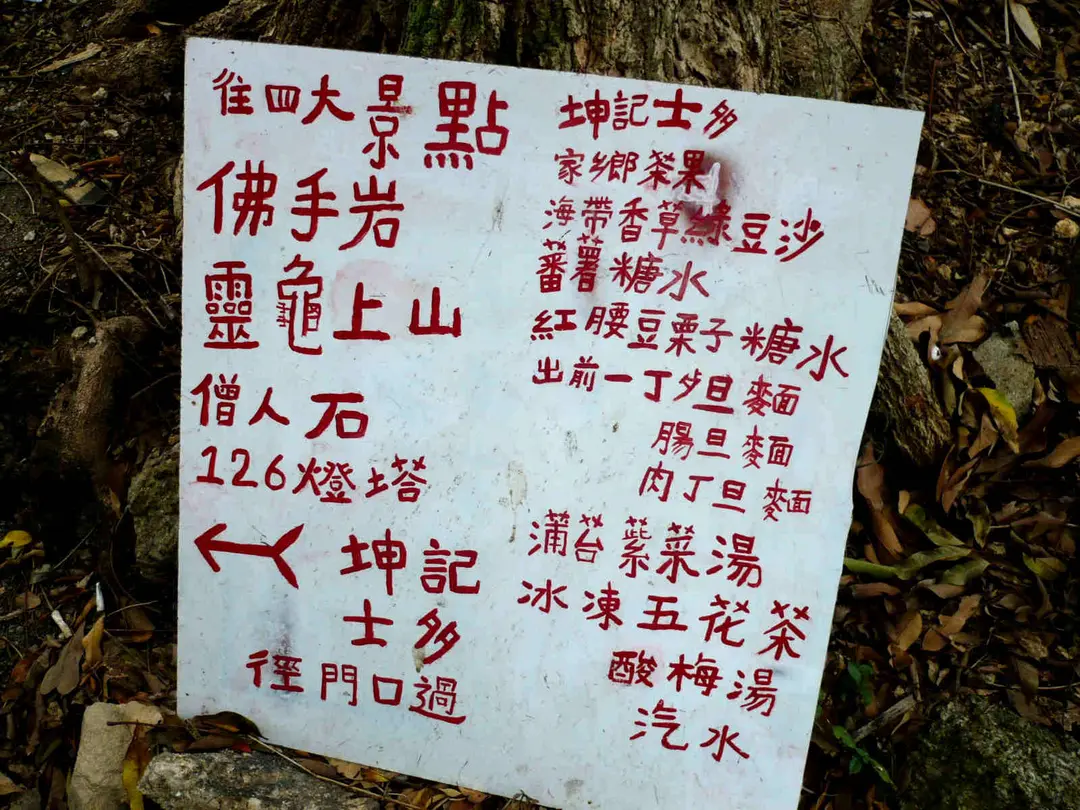 往四大景點
佛手岩
靈龜上山
僧人石
126燈塔
坤記
士多
徑門口過
坤記士多
家鄉茶果
海帶香草綠豆沙
蕃薯糖水
紅腰豆栗子糖水
出前一丁夕旦麵
腸旦麵
肉丁旦麵
蒲苔紫菜湯
冰凍五花茶
酸梅湯
汽水